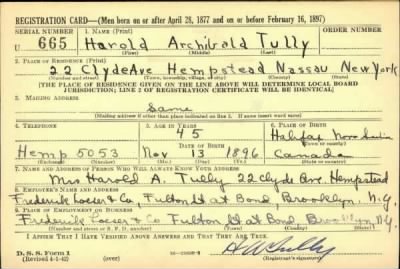 REGISTRATION CARD—(Men born on or after April 28, 1877 and on or before February 16, 1897)
SERIAL NUMBER 1. NAME (Print) ORDER NUMBER
U 665 Harold Archibald Tully
(First) (Middle) (Last)
2. PLACE OF RESIDENCE (Print)
22 Clyde Ave Hempstead Nassau New York
(Number and street) (Town, township, village, or city) (County) (State)
[THE PLACE OF RESIDENCE GIVEN ON THE LINE ABOVE WILL DETERMINE LOCAL BOARD
JURISDICTION; LINE 2 OF REGISTRATION CERTIFICATE WILL BE IDENTICAL]
3. MAILING ADDRESS
Same
(Mailing address if other than place indicated on line 2. If same insert word same)
4. TELEPHONE 5. AGE IN YEARS 6. PLACE OF BIRTH
45 Halifax Nova Scotia
DATE OF BIRTH (Town or county)
Hemp 5053 Nov 13 1896 Canada
(Exchange) (Number) (Mo.) (Day) (Yr.) (State or country)
7. NAME AND ADDRESS OF PERSON WHO WILL ALWAYS KNOW YOUR ADDRESS
Mrs Harold A. Tully 22 Clyde Ave. Hempstead
8. EMPLOYER'S NAME AND ADDRESS
Frederik Loeser & Co, Fulton St at Bond, Brooklyn, N.Y.
9. PLACE OF EMPLOYMENT OR BUSINESS
Frederik Loeser & Co Fulton St at Bond, Brooklyn, N.Y.
(Number and street or R. F. D. number) (Town) (County) (State)
I AFFIRM THAT I HAVE VERIFIED ABOVE ANSWERS AND THAT THEY ARE TRUE.
D. S. S. Form 1
(Revised 4-1-42) (over) (Registrant's signature)